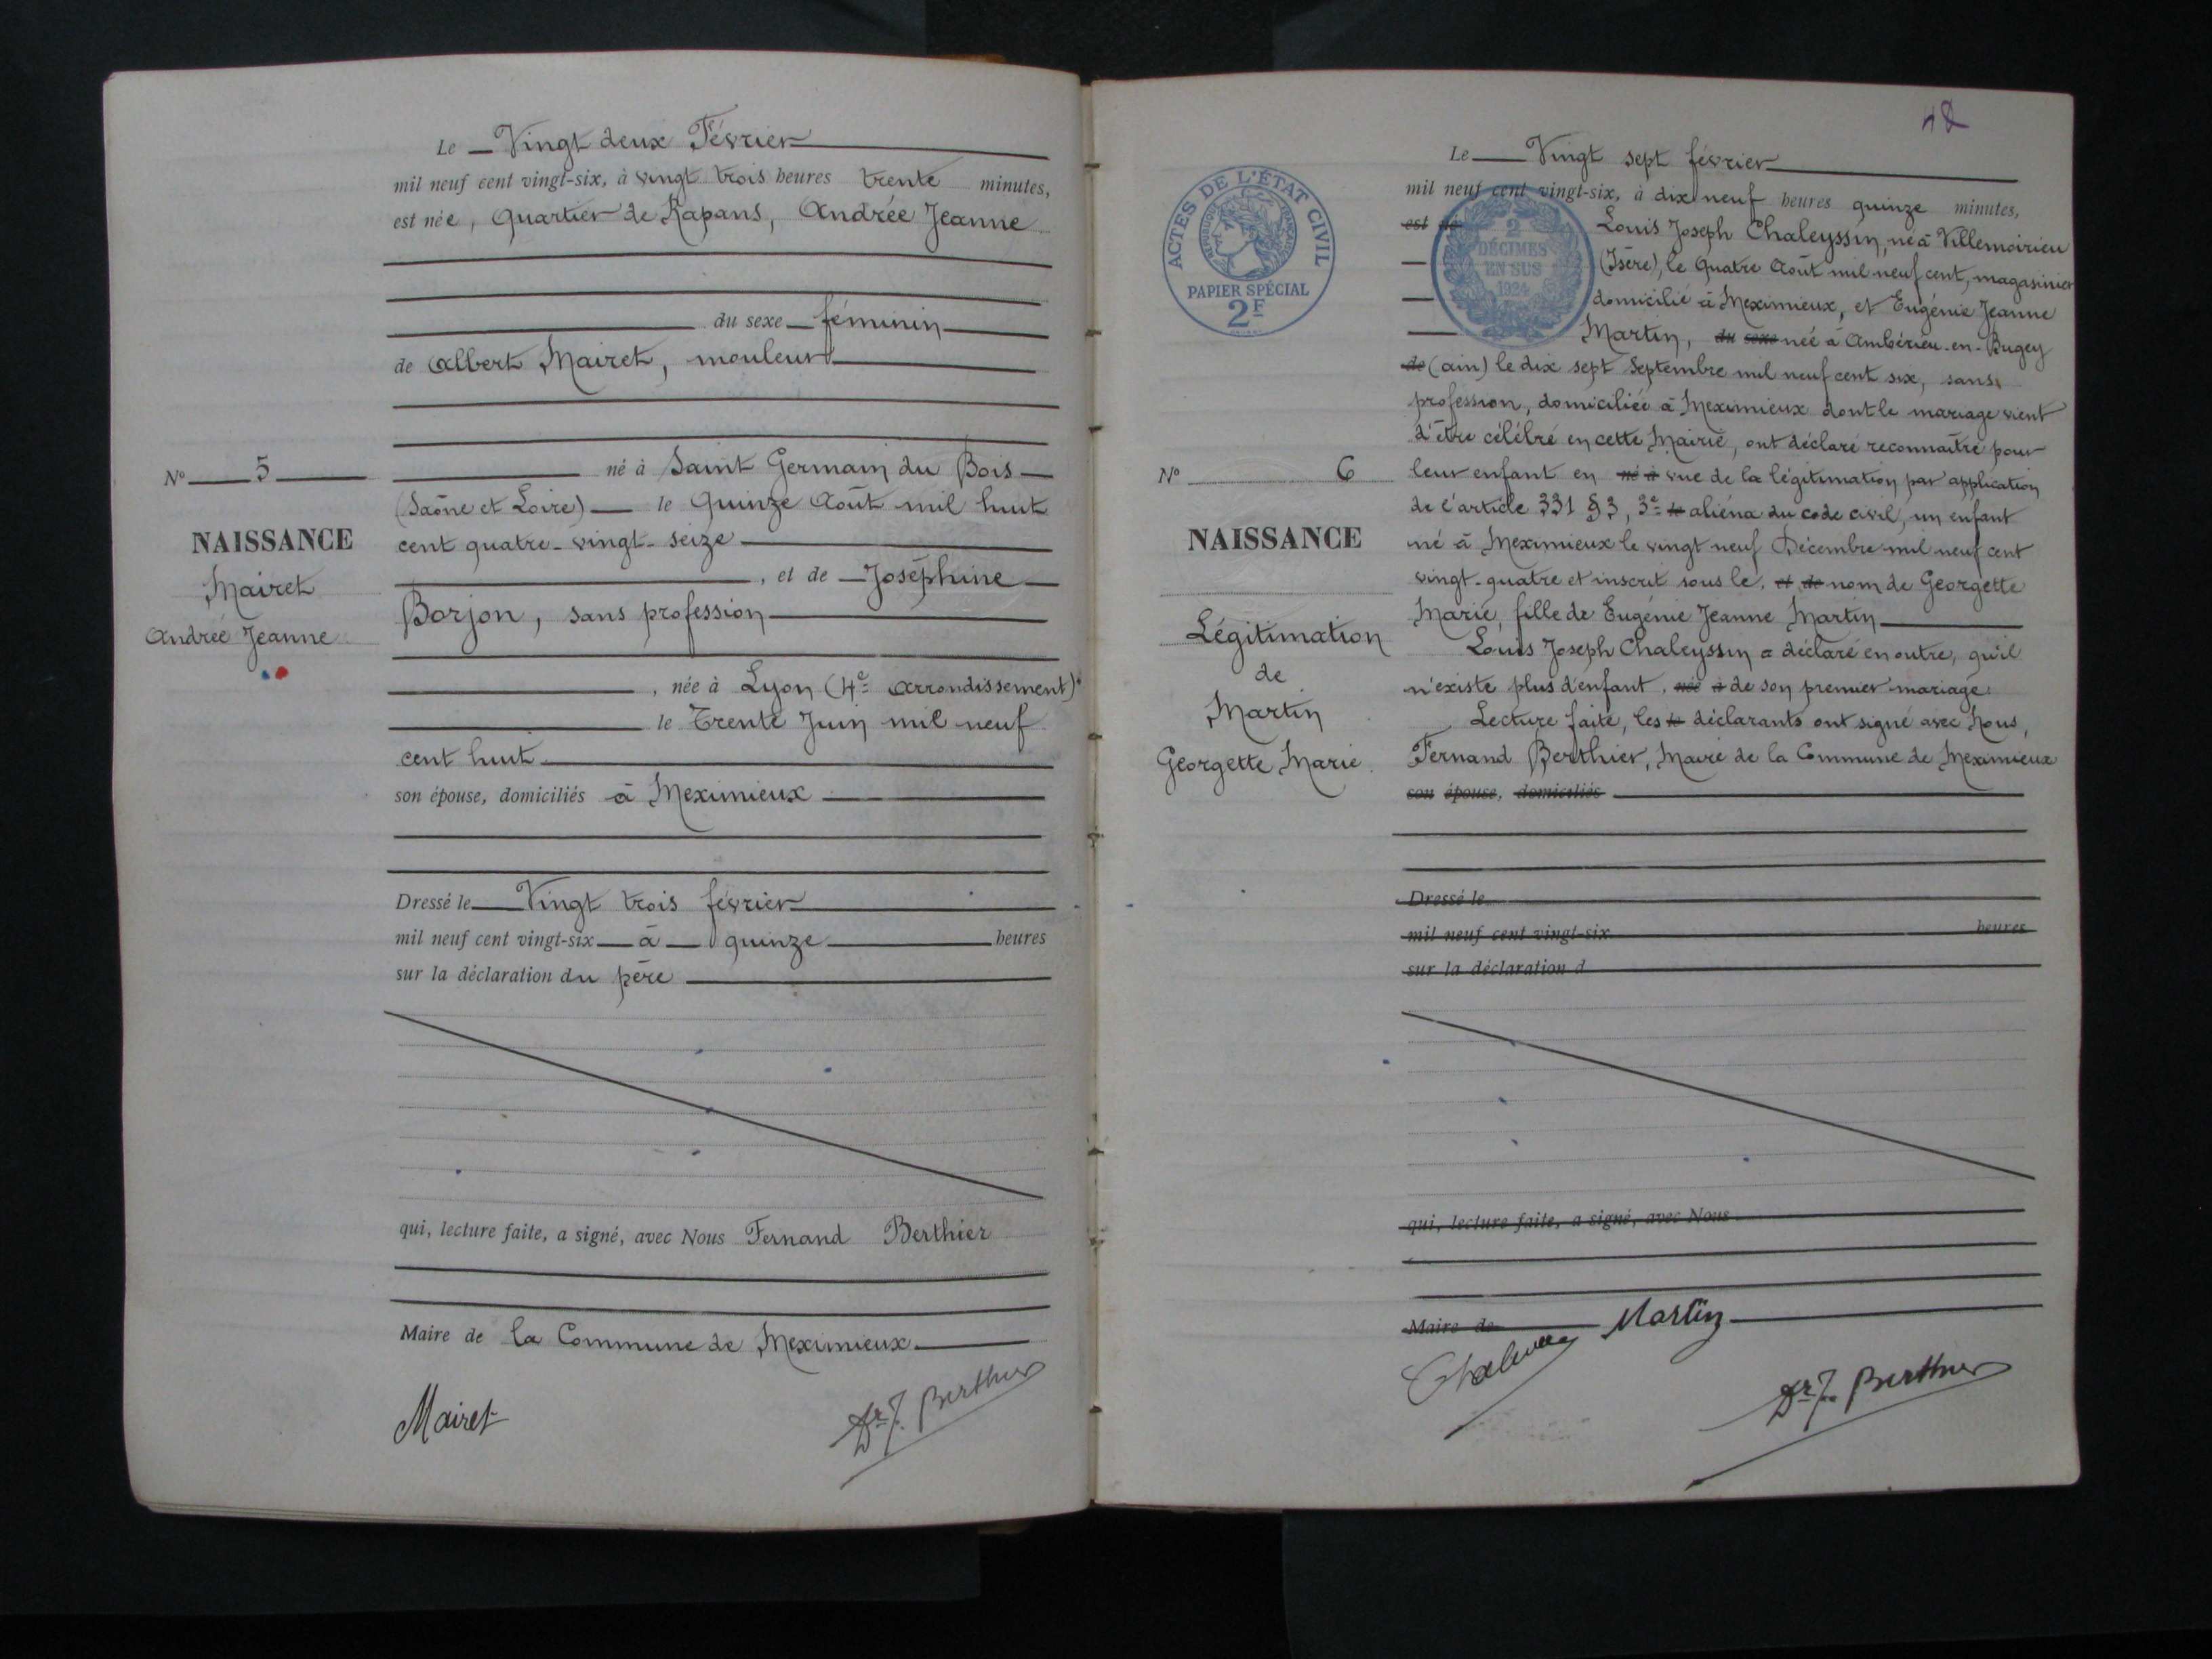 Le Vingt deux Février
mil neuf cent vingt-six, à vingt trois heures trente minutes,
est née, Quartier de Rapans, Andrée Jeanne
du sexe féminin
de Albert Mairet, mouleur
né à Saint Germain du Bois
(Saône et Loire) le Quinze Août mil huit
cent quatre-vingt-seize
, et de Joséphine
Borjon, sans profession
, née à Lyon (4e arrondissement)
le Trente Juin mil neuf
cent huit
son épouse, domiciliés à Meximieux
Dressé le Vingt trois février
mil neuf cent vingt-six à quinze heures
sur la déclaration du père
qui, lecture faite, a signé, avec Nous Fernand Berthier
Maire de la Commune de Meximieux
Mairet
Dr F. Berthier
No 5
NAISSANCE
Mairet
Andrée Jeanne
48
ACTES DE L'ÉTAT CIVIL
RÉPUBLIQUE FRANÇAISE
PAPIER SPÉCIAL
2F
2
DÉCIMES
EN SUS
1924
No 6
NAISSANCE
Légitimation
de
Martin
Georgette Marie
Le Vingt sept février
mil neuf cent vingt-six, à dix neuf heures quinze minutes,
est né Louis Joseph Chaleyssin, né à Villemoirieu
(Isère), le Quatre Août mil neuf cent, magasinier
domicilié à Meximieux, et Eugénie Jeanne
Martin, du sexe née à Ambérieu-en-Bugey
de (ain) le dix sept Septembre mil neuf cent six, sans
profession, domiciliée à Meximieux dont le mariage vient
d'être célébré en cette Mairie, ont déclaré reconnaître pour
leur enfant en né à vue de la légitimation par application
de l'article 331 § 3, 3e le aliéna du code civil, un enfant
né à Meximieux le vingt neuf Décembre mil neuf cent
vingt-quatre et inscrit sous le, et de nom de Georgette
Marie, fille de Eugénie Jeanne Martin
Louis Joseph Chaleyssin a déclaré en outre, qu'il
n'existe plus d'enfant, née à de son premier mariage.
Lecture faite, les le déclarants ont signé avec Nous,
Fernand Berthier, Maire de la Commune de Meximieux
son épouse, domiciliés
Dressé le
mil neuf cent vingt-six heures
sur la déclaration d
qui, lecture faite, a signé, avec Nous
Maire de
Martin
Dr F. Berthier